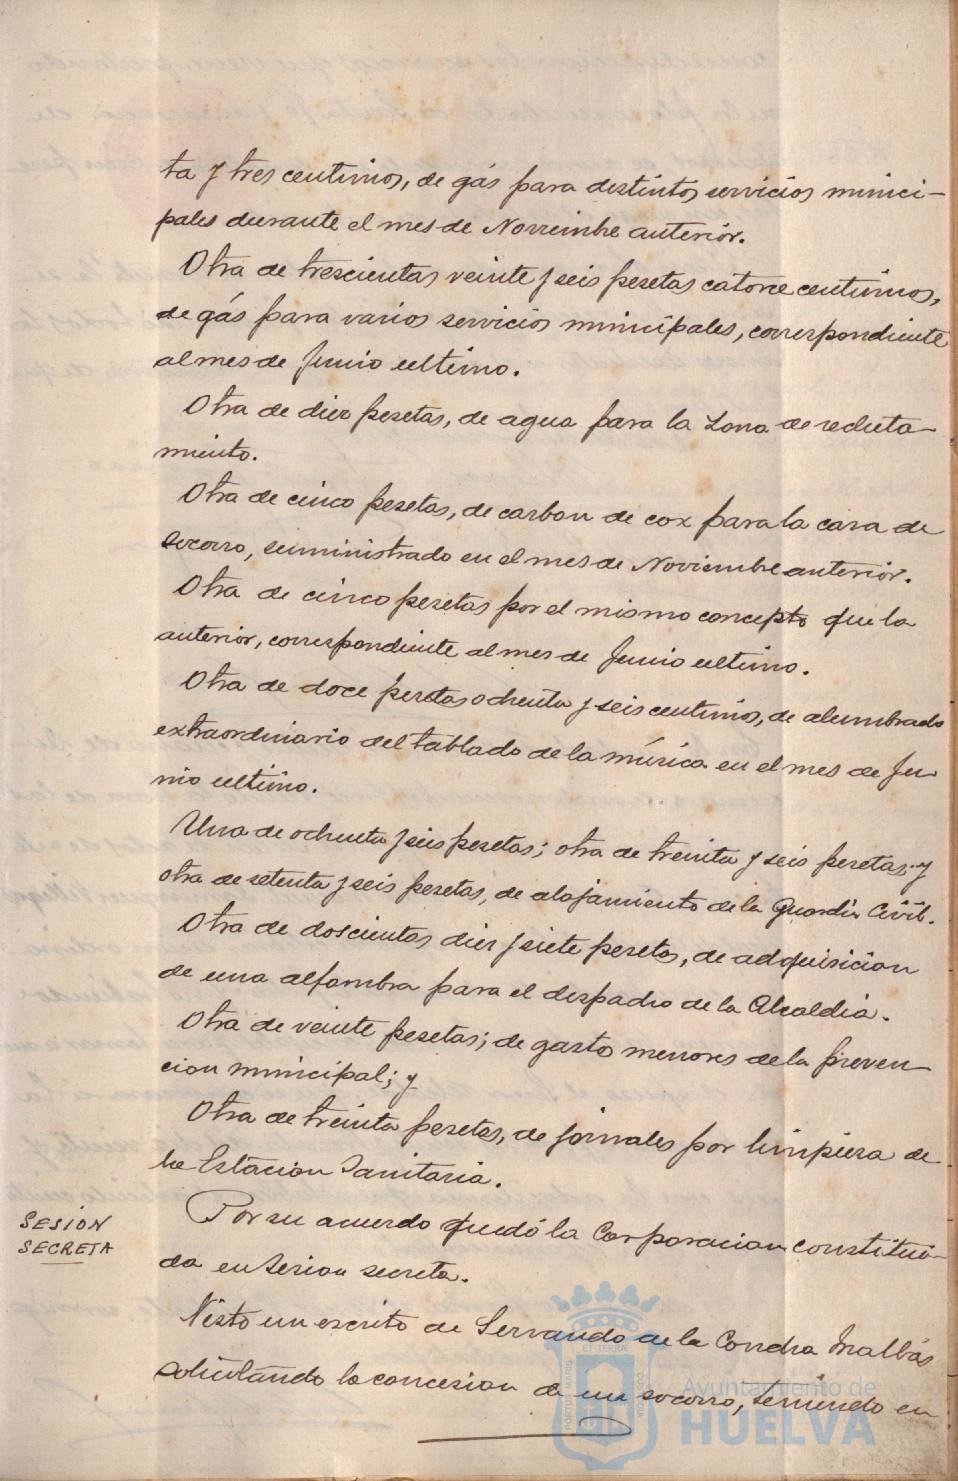 ta y tres centimos, de gás para distintos servicios munici-
pales durante el mes de Noviembre anterior.
Otra de trescientas veinte y seis pesetas catorce centimos,
de gás para varios servicios municipales, correspondiente
al mes de Junio ultimo.
Otra de diez pesetas, de agua para la Zona de recluta-
miento.
Otra de cinco pesetas, de carbon de cox para la casa de
socorro, suministrado en el mes de Noviembre anterior.
Otra de cinco pesetas por el mismo concepto que la
anterior, correspondiente al mes de Junio ultimo.
Otra de doce pesetas ochenta y seis centimos, de alumbrado
extraordinario del tablado de la música en el mes de Ju-
nio ultimo.
Una de ochenta y seis pesetas; otra de treinta y seis pesetas; y
otra de setenta y seis pesetas, de alojamiento de la Guardia Civil.
Otra de doscientas diez y siete pesetas, de adquisicion
de una alfombra para el despacho de la Alcaldía.
Otra de veinte pesetas; de gastos menores de la preven-
cion municipal; y
Otra de treinta pesetas, de jornales por limpieza de
la Estacion Sanitaria.
SESION
SECRETA
Por su acuerdo quedó la Corporacion constitui-
da en sesion secreta.
Visto un escrito de Servando de la Concha
solicitando la concesion de un socorro, teniendo en
ET TERRAE
PORTUS MARIS
CUSTODIA
Ayuntamiento de
HUELVA